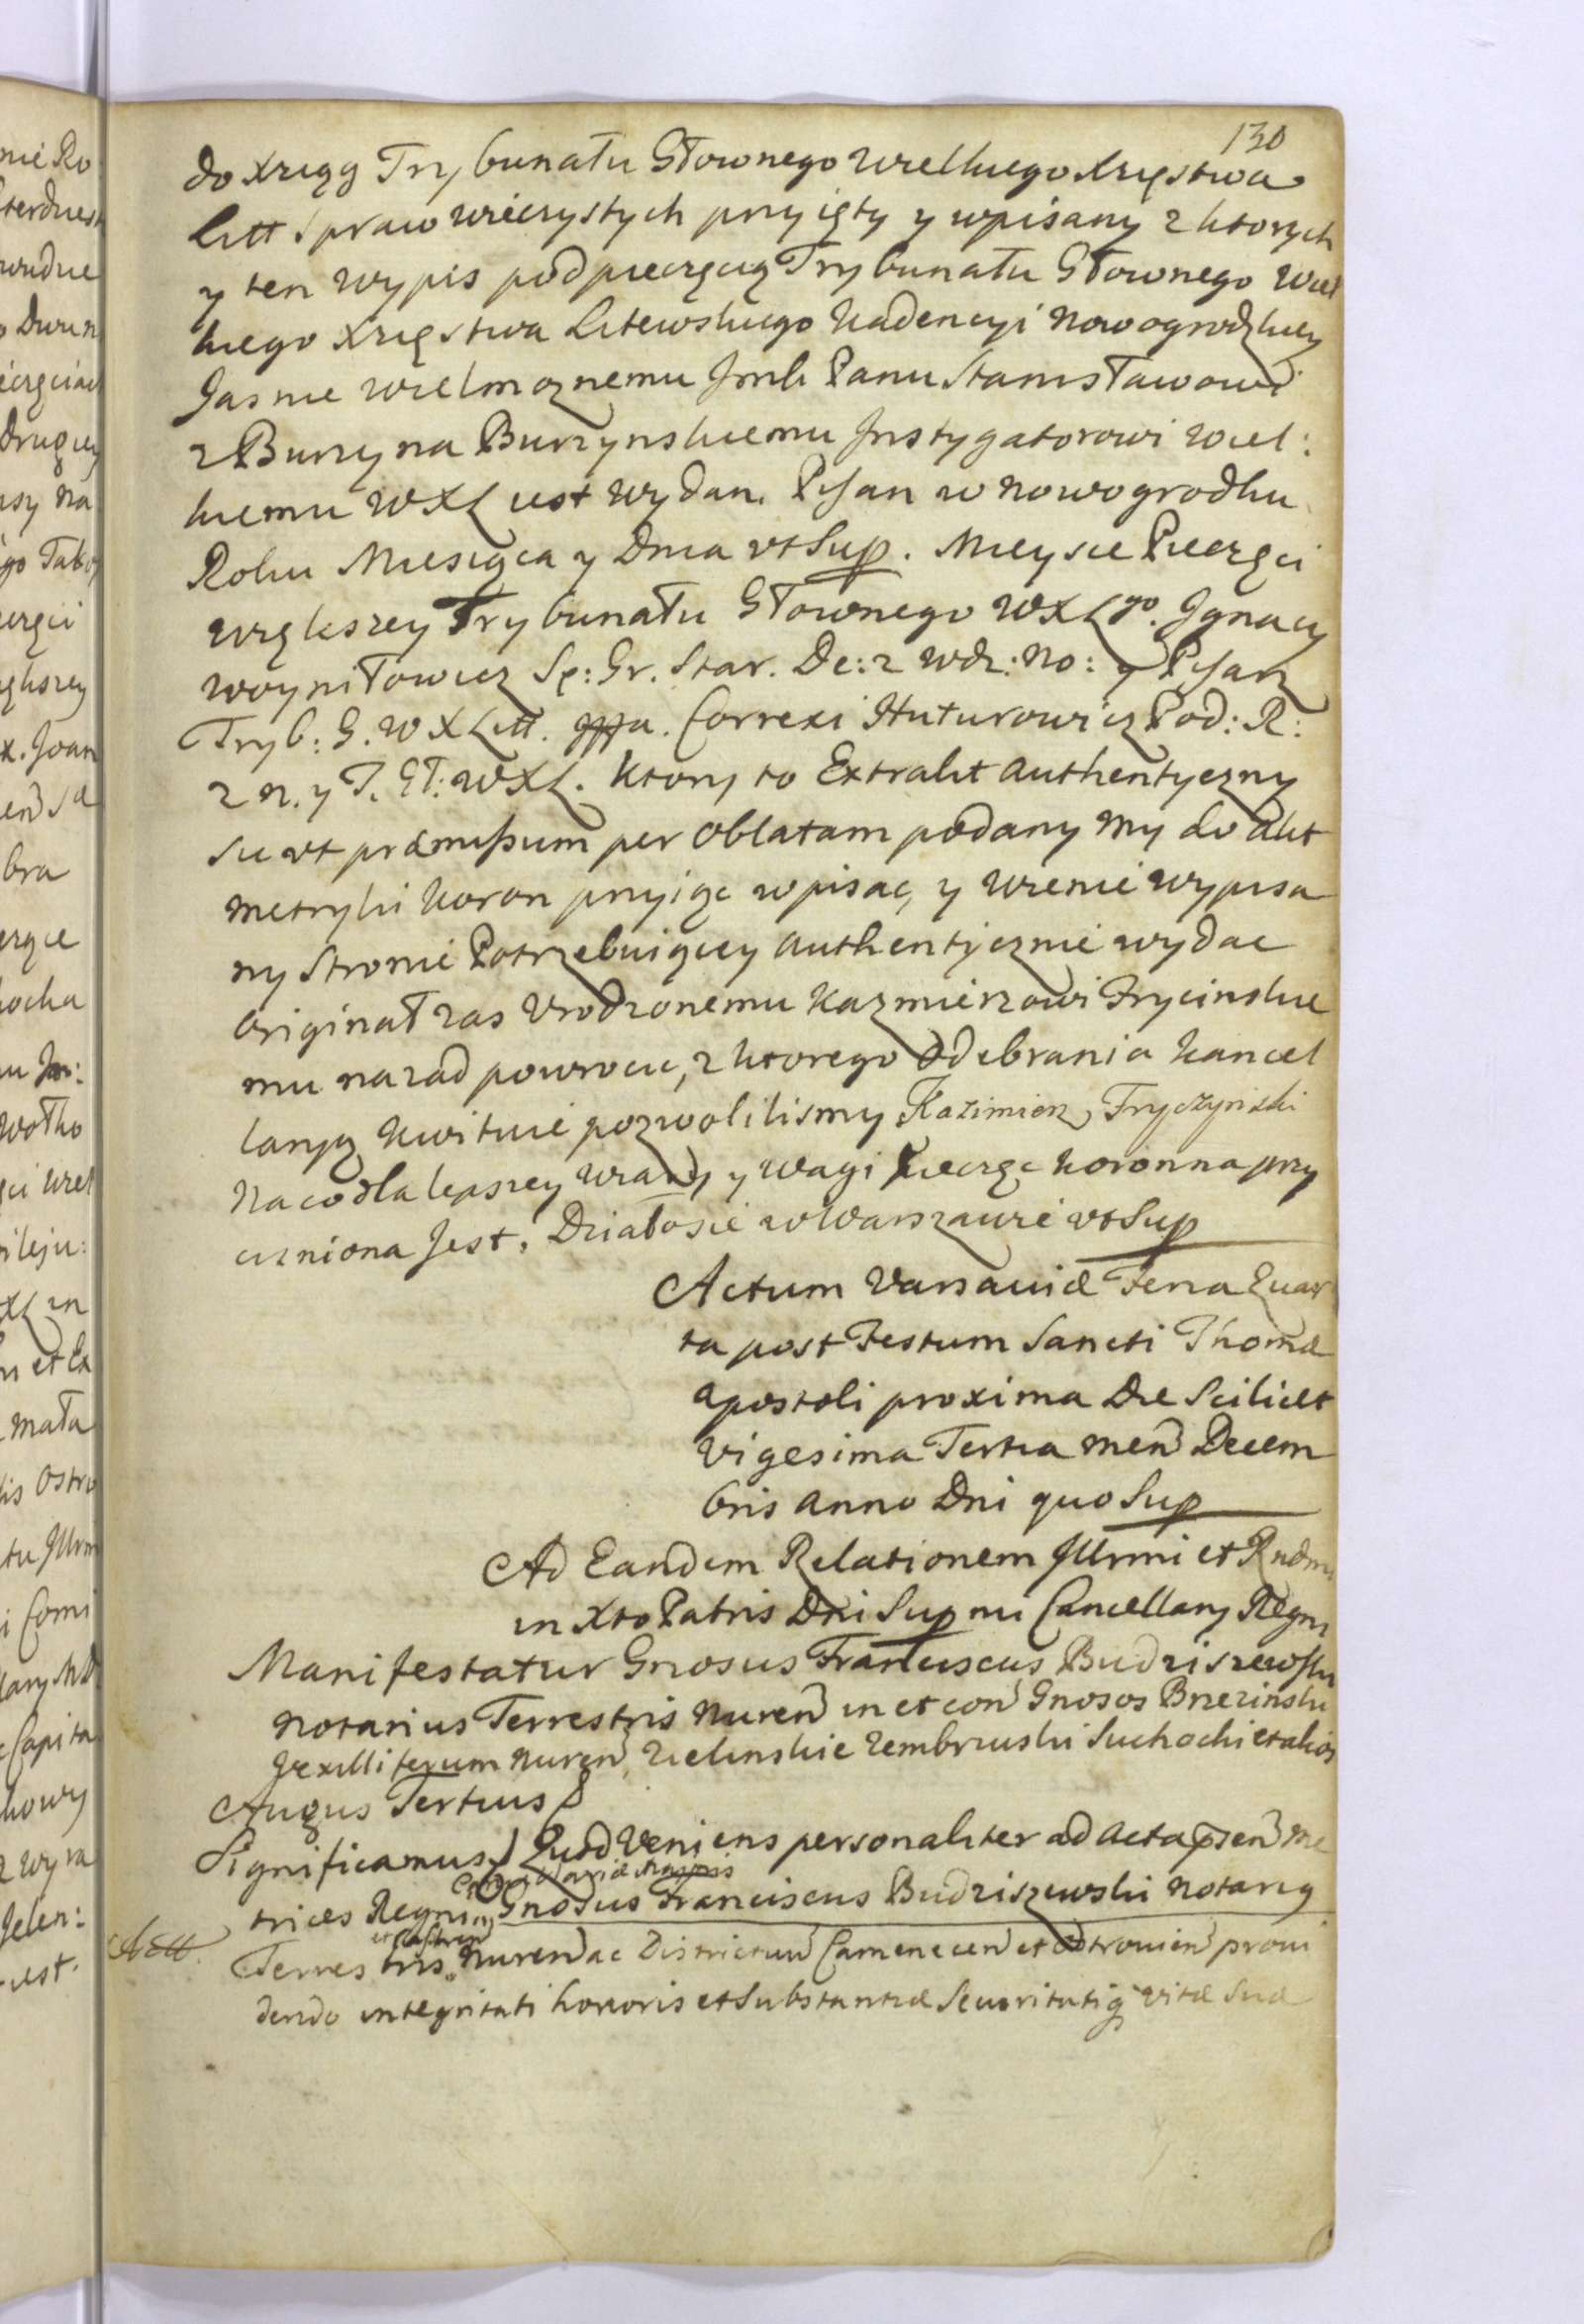 130
do Xsiąg Trybunału Głownego Wielkiego Xsięstwa
Litt Spraw wieczystych przyięty y wpisany z ktorych
y ten Wypis pod pieczęcią Trybunału Głownego Wiel
kiego Xsięstwa Litewskiego Kadencyi Nowogrodzkiey
Jasnie Wielmoznemu Jmb Panu Stanisławowi
z Burzyna Burzynskiemu Jnstygatorowi Wiel:
kiemu WXL iest wydan. Pisan w Nowogrodku
Roku Miesiąca y Dnia vt Sup. Mieysce Pieczęci
większey Trybunału Głownego WXLgo. Jgnacy
Woyniłowicz Sę: Gr. Star. De: z Wdz: No: y Pisarz
Tryb: G. W X Litt. Correxi Huturowicz Pod: R:
z n. y T. Gł: WXL. Ktory to Extrakt Authentyczny
sic vt præmissum per Oblatam podany My do Akt
Metryki Koron przyiąc wpisac, y wiernie wypisa
ny Stronie Potrzebuiącey Authentycznie wydac
Originał zas Vrodzonemu Kazmierzowi Frycinskie
mu nazad powrocic, z ktorego Odebrania Kancel
laryą kwituie pozwolilismy Kazimierz Fryczyński
Na co dla lepszey wiary y wagi Pieczęc Koronna przy
cisniona Jest. Działosie w Warszawie vt Sup
Actum Varsaviæ Feria Quar
ta post Festum Sancti Thomæ
Apostoli proxima Die Scilicet
Vigesima Tertia men Decem
bris Anno Dni quo Sup
Ad Eandem Relationem Jllrmi et Rndmi
in Xto Patris Dni Supmi Cancellary Regni
Manifestatur Gnosus Franciscus Budziszewski
Notarius Terrestris Nuren in et con Gnosos Brzezinski
Vexilliferum Nuren, Zielinskie Zembrzuski Suchocki et alios
Augus Tertius
Significamus Quod Veniens personaliter ad Acta psen Me
trices Regni Gnosus Franciscus Budziszewski Notarig
et Castren
Terrestris Nuren ac Districtuum Camenecen et Ostrovien provi
dendo integritati honoris et Substantiæ Securitatiq vitæ Suæ